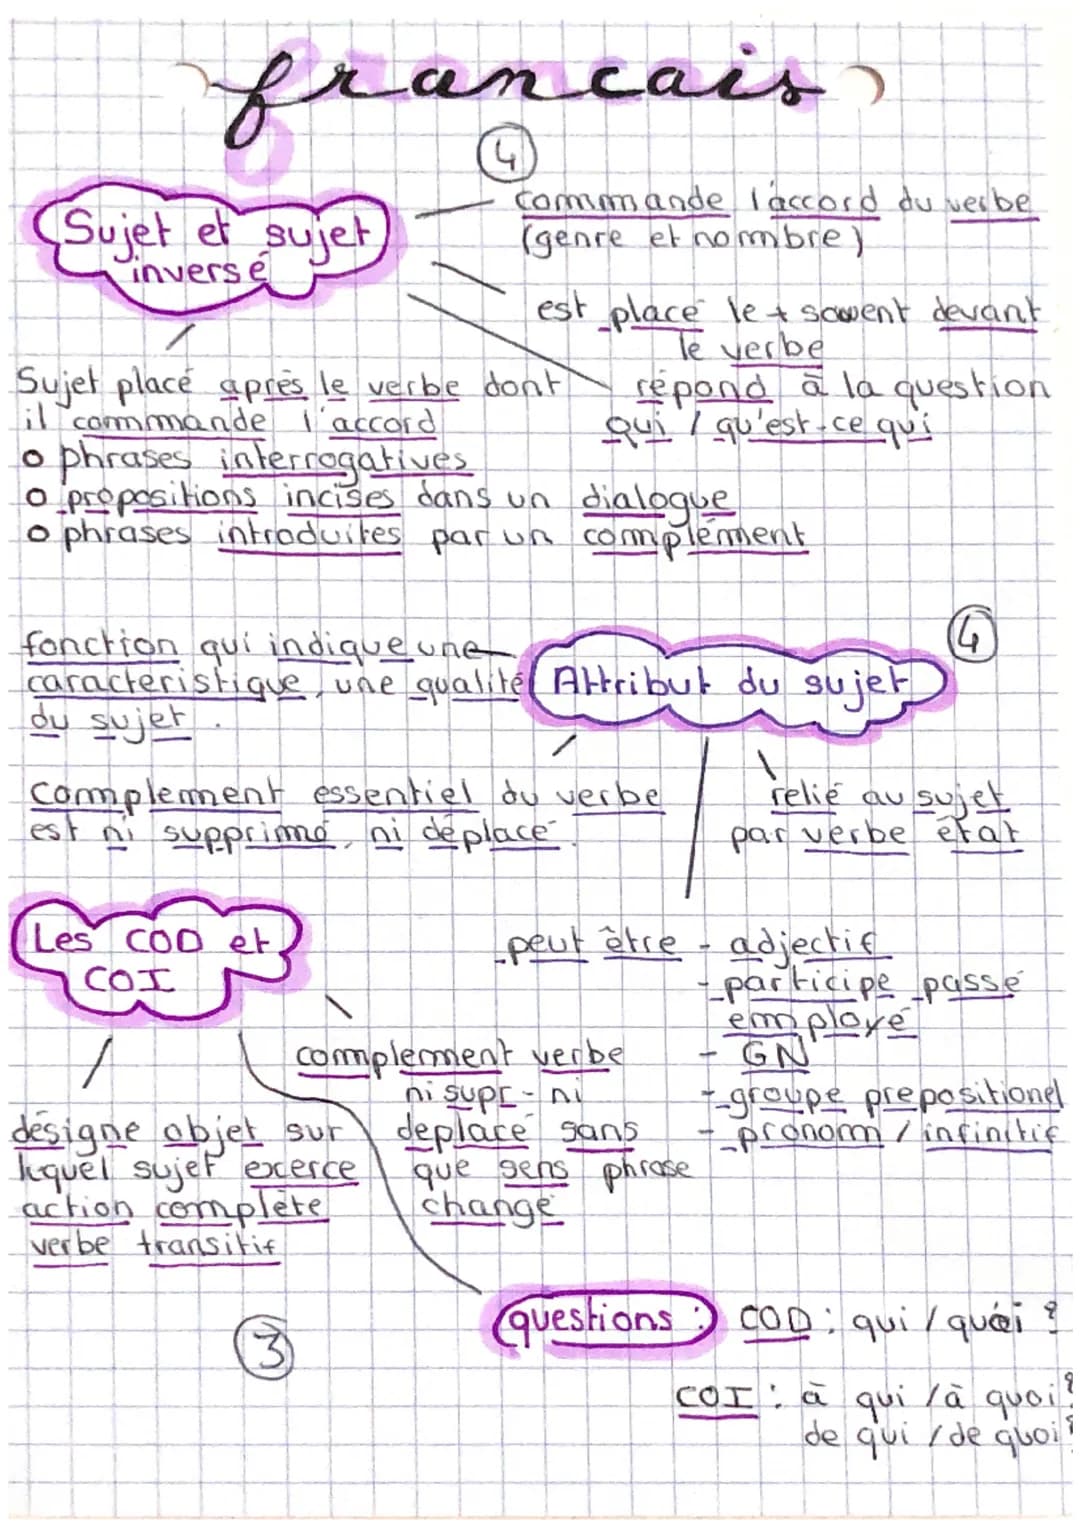 francais
4
Sujet et sujet
inversé
commande l'accord du verbe
(genre et nombre)
est placé le + souvent devant
le verbe
répond à la question
qui / qu'est-ce qui
Sujet placé après le verbe dont
il commande l'accord
o phrases interrogatives
o propositions incises dans un dialogue
o phrases introduites par un complément
4
Attribut du sujet
fonction qui indique une
caractéristique, une qualité
du sujet.
complement essentiel du verbe
est ni supprimé, ni déplacé.
relié au sujet
par verbe état
peut être - adjectif
- participe passé
employé
- GN
- groupe prepositionel
- pronom / infinitif
Les COD et
COI
complement verbe
ni supr - ni
deplacé sans
que sens phrase
change
désigne objet sur
lequel sujet exerce
action complète
verbe transitif
3
questions : COD : qui / quoi ?
COI : à qui / à quoi ?
de qui / de quoi ?